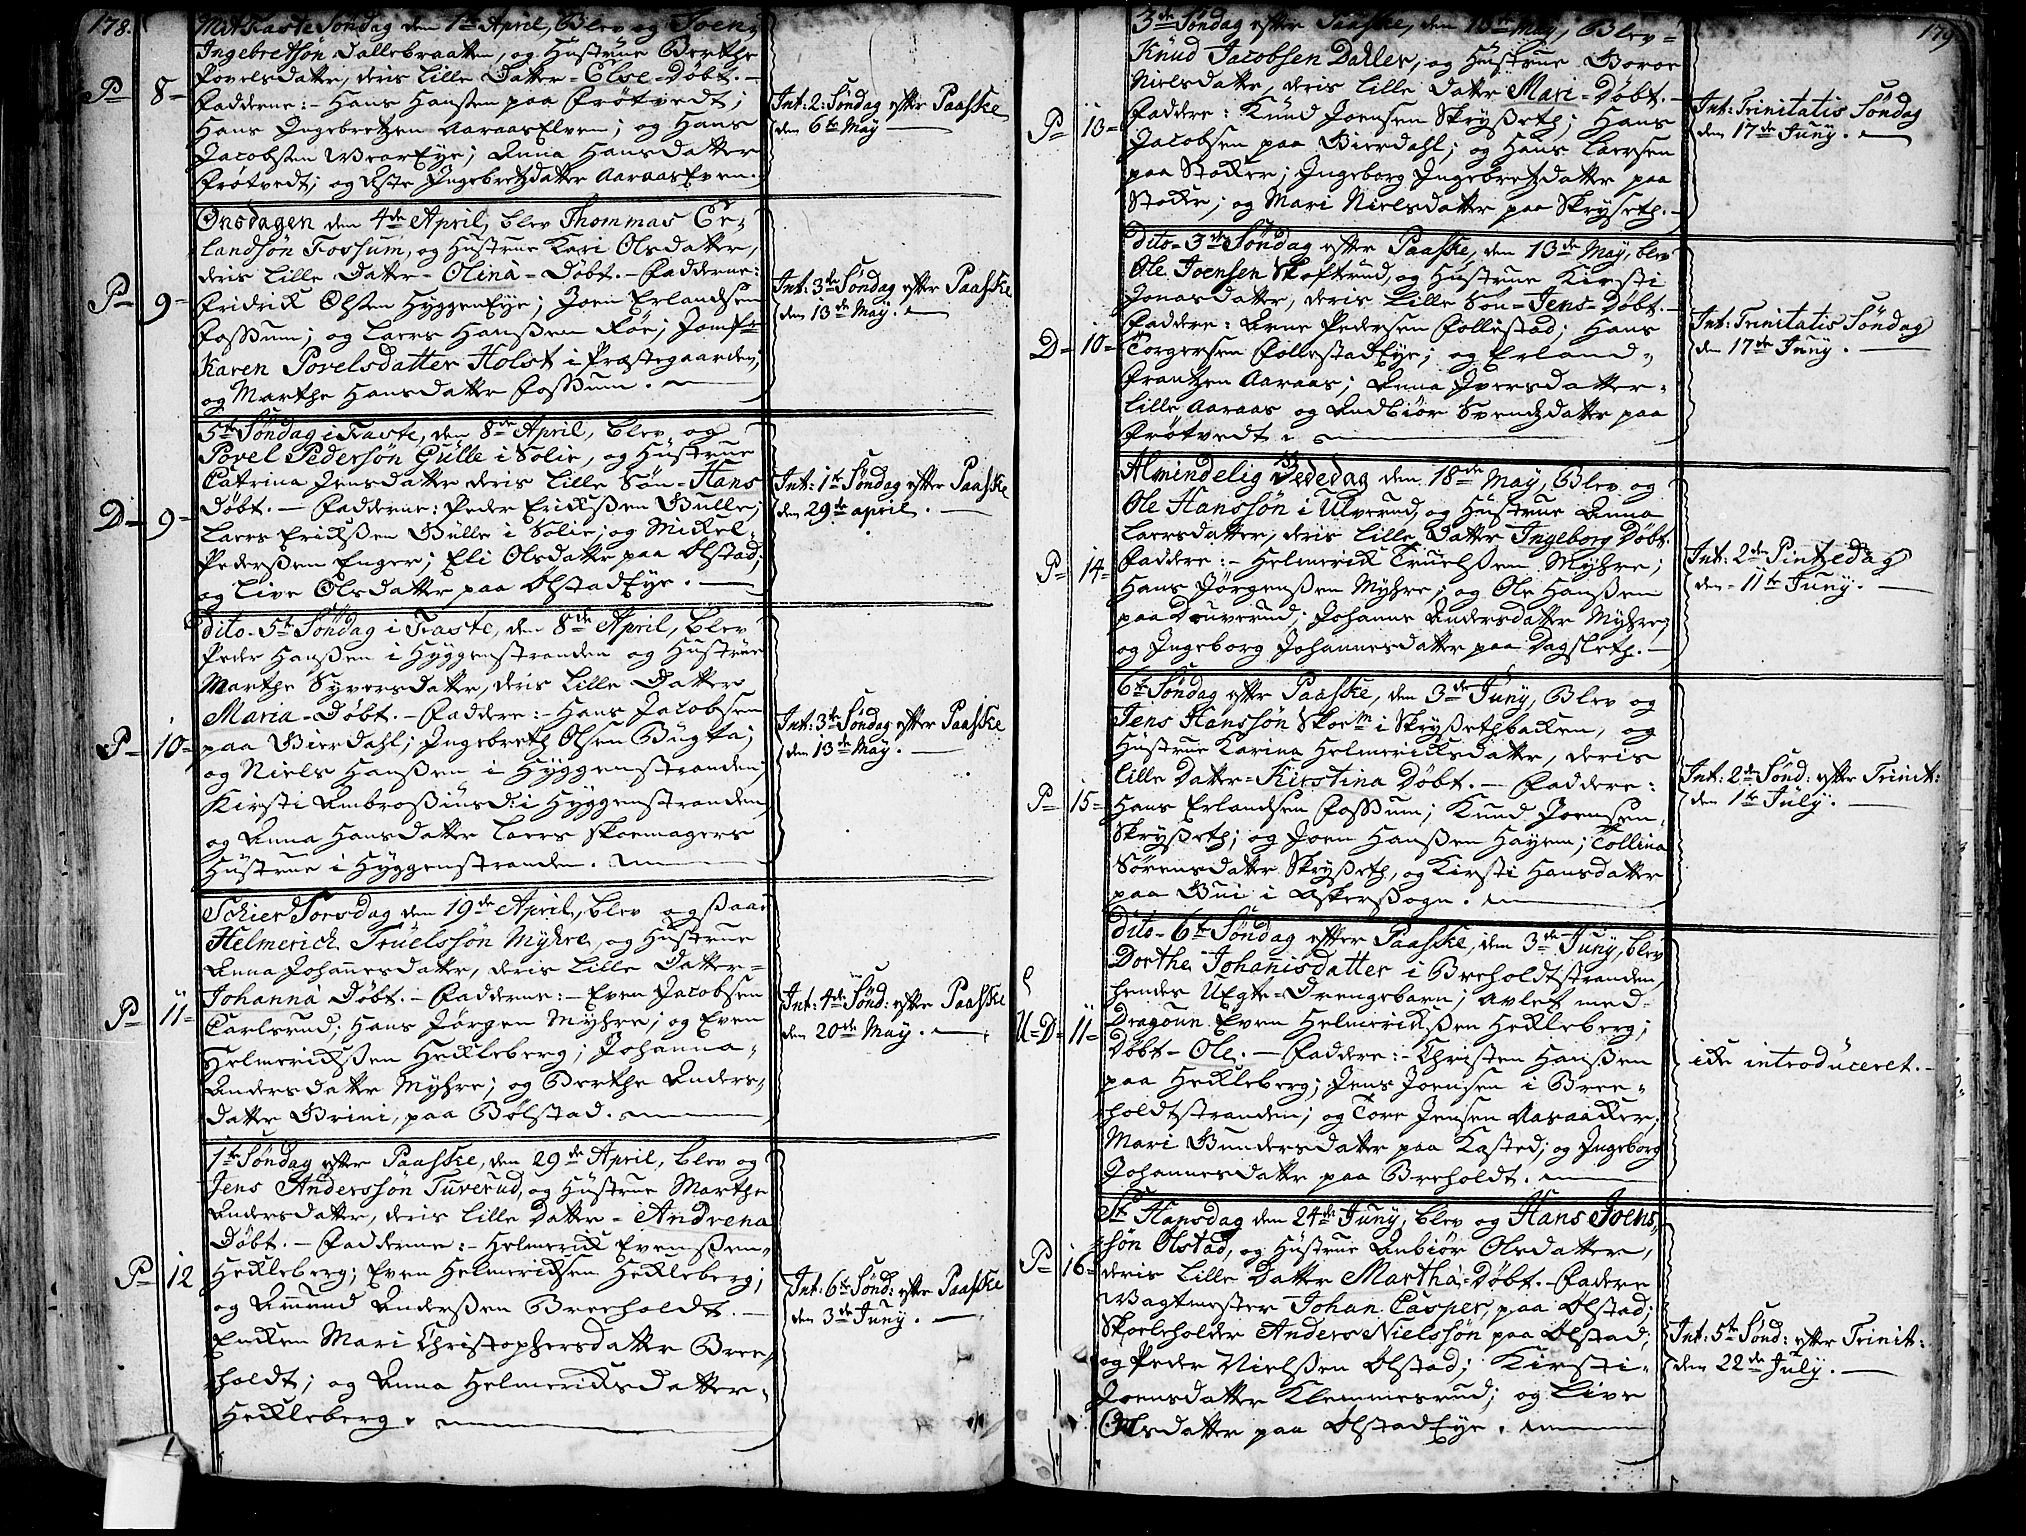 178.
Mit Faste Søndag den 1te April, Blev og Joen
Ingebretsøn Dallebraatten, og Hustrue Berthe
Povelsdatter, deris Lille Datter - Else - Døbt. -
P 8
Fadderne: - Hans Hansen paa Frøtvedt;
Hans Ingebretzen Aaraas Elven; og Hans
Jacobsen Eye; Anna Hansdatter
Frøtvedt; og Ingebretzdatter Aaraas
Int: 2: Søndag efter Paaske
den 6te May
Onsdagen den 4de April, blev Thommas Er-
landsøn Fossum, og Hustrue Kari Olsdatter,
deris Lille Datter - Olina - Døbt. - Fadderne:
P 9
Fridrick Olsen Hyggen Eye; Joen Erlandsen
Fossum; og Laers Hanssen Röe; Jomfr
Karen Povelsdatter Holst i Præstegaarden;
og Marthe Hansdatter Fossum.
Int: 3de Søndag efter Paaske
den 13de May.
5te Søndag i Faste, den 8de April, blev og
Povel Pedersøn Gulle i Solie, og Hustrue
Catrina Jensdatter deris Lille Søn - Hans
D 9
Døbt. - Fadderne: Peder Erickssen Gulle;
Laers Erickssen Gulle i Solie; og Mickel
Pederssen Enger; Eli Olsdatter paa Ølstad;
og Live Olsdatter paa Ølstad Eye.
Int: 1te Søndag efter Paaske
den 29de april.
dito - 5te Søndag i Faste, den 8de April, blev
Peder Hanssen i Hyggenstranden og Hustrue
Marthe Syversdatter, deris Lille Datter
Maria - Døbt. - Faddere: - Hans Jacobsen
P 10
paa Bierdahl; Ingebreth Olsen Bugta;
og Niels Hanssen i Hyggenstranden;
Kirsti Ambrosiusd: i Hyggenstranden,
og Anna Hansdatter Laers skoemagers
Hustrue i Hyggenstranden.
Int: 3de Søndag efter Paaske
den 13de May.
Schier Torsdag den 19de April, blev ogsaa
Helmerich Truelssøn Myhre, og Hustrue
Anna Johannesdatter, deris Lille Datter =
Johanna Døbt. - Fadderne: - Even Jacobsen
P 11
Carlsrud; Hans Jørgen Myhre; og Even
Helmerickssen Heckleberg; Johanna
Andersdatter Myhre; og Berthe Anders-
datter Grini, paa Bølstad.
Int: 4de Sønd: efter Paaske
den 20de May.
1te Søndag efter Paaske, den 29de April, blev og
Jens Anderssøn Tuverud, og Hustrue Marthe
Andersdatter, deris Lille Datter = Andrena
Døbt. - Fadderne: - Helmerick Evenssen
P 12
Heckleberg; Even Helmericksen Heckleberg;
og Amund Anderssen Breeholdt. -
Encken Mari Christophersdatter Bree-
holdt; og Anna Helmericksdatter
Heckleberg.
Int: 6te Sønd: efter Paaske
den 3de Juny.
179
3de Søndag efter Paaske, den 13de May, Blev
Knud Jacobsen Daller, og Hustrue Boroe
Nielsdatter, deris Lille Datter Mari - Døbt.
P 13
Faddere: Knud Joensen Skrysseth; Hans
Jacobsen paa Bierdahl; og Hans Laersen
paa Stocker; Ingeborg Ingebretzdatter paa
Stocke; og Mari Nielsdatter paa Skryseth.
Int: Trinitatis Søndag
den 17de Juny.
dito - 3de Søndag efter Paaske, den 13de May, blev
Ole Joensen Skoftrud, og Hustrue Kirsti
Jonasdatter, deris Lille Søn - Jens - Døbt.
D 10
Faddere: Arne Pedersen Follestad; Hans
Torgersen Follestad Eye; og Erland
Frantzen Aaraas; Anna Iversdatter
Lille Aaraas og Andbiør Svendzdatter paa
Frøtvedt.
Int: Trinitatis Søndag
den 17de Juny.
Almindelig Bededag den 18de May, Blev og
Ole Hanssøn i Ulverud, og Hustrue Anna
Laersdatter, deris Lille Datter Ingeborg Døbt.
P 14
Faddere: - Helmerick Truelssen Myhre;
Hans Jørgenssen Myhre; og Ole Hanssen
paa Douverud; Johanne Andersdatter Myhre;
og Ingeborg Johannesdatter paa Dagsleth.
Int: 2den Pintzedag
den 11te Juny.
6te Søndag efter Paaske, den 3de Juny, Blev og
Jens Hanssøn Skoem i Skryssethbacken, og
Hustrue Karina Helmericksdatter, deris
Lille Datter - Kirstina Døbt. - Faddere:
P 15
Hans Erlandsen Fossum; Knud Joensen
Skrysseth; og Joen Hanssen Hayem; Tollina
Sørensdatter Skrysseth, og Kirsti Hansdatter
paa Bui i Asker Sogn.
Int: 2de Sønd: efter Trinit:
den 1te July.
dito - 6te Søndag efter Paaske, den 3de Juny, blev
Dorthe Johanisdatter i Breholdtstranden,
hendes UEgte - Drengebarn; avlet med
U - D 11
Dragoun Even Helmerickssen Heckleberg;
Døbt - Ole. - Faddere: - Christen Hanssen
paa Heckleberg; Jens Joensen i Bree-
holdtstranden; og Tore Jensen Aaraaker;
Mari Gundersdatter paa Kasted; og Ingeborg
Johannesdatter paa Breholdt.
icke introduceret.
St Hansdag den 24de Juny, blev og Hans Joens-
søn Ølstad, og Hustrue Anbiør Olsdatter,
P 16
deris Lille Datter Martha - Døbt. - Fadere
Vagtmester Johan Casper paa Ølstad;
Skoeleholder Anders Nielssøn paa Ølstad,
og Peder Nielssen Ølstad; Kirsti
Joensdatter Klemmesrud; og Live
Olsdatter paa Ølstad Eye.
Int: 5te Sønd: efter Trinit:
den 22de July.